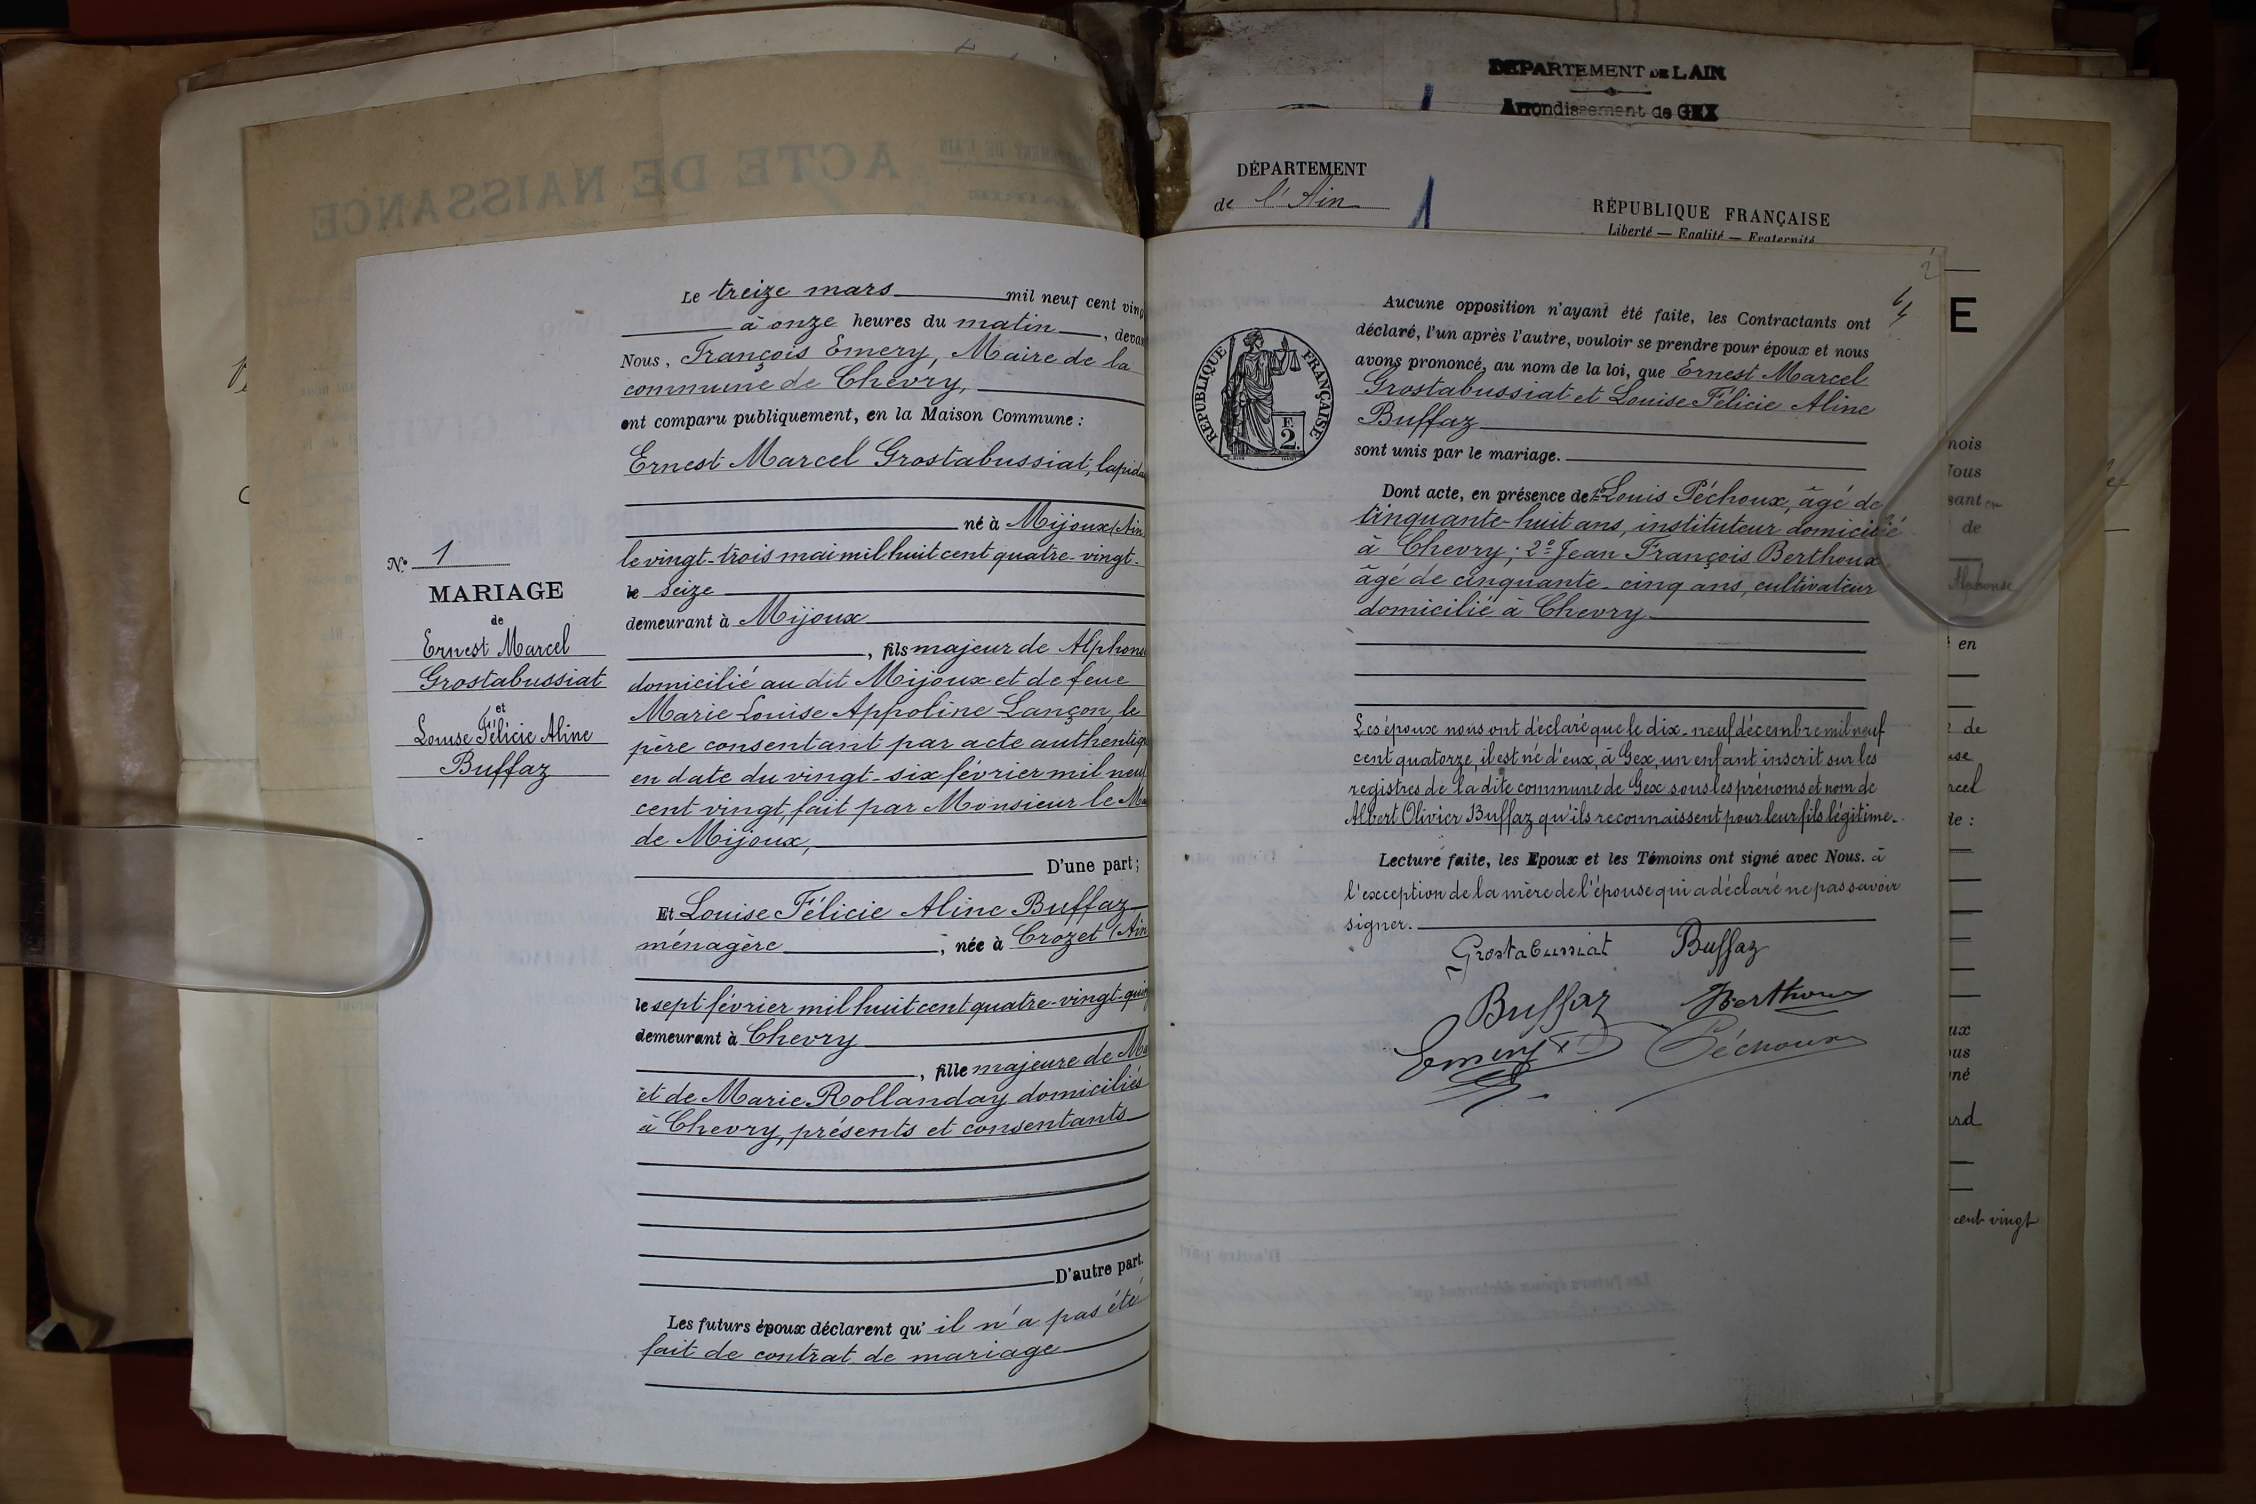 DÉPARTEMENT DE L'AIN
Arrondissement de GEX
ACTE DE NAISSANCE
DÉPARTEMENT
de l'Ain
1
RÉPUBLIQUE FRANÇAISE
Liberté — Egalité — Fraternité
N° 1
MARIAGE
de
Ernest Marcel
Grostabussiat
et
Louise Félicie Aline
Buffaz
Le treize mars mil neuf cent ving
à onze heures du matin, devan
Nous, François Emery, Maire de la
commune de Chevry,
ont comparu publiquement, en la Maison Commune :
Ernest Marcel Grostabussiat, lapida
né à Mijoux (Ain
le vingt-trois mai mil huit cent quatre-vingt-
le seize
demeurant à Mijoux
, fils majeur de Alphons
domicilié au dit Mijoux et de feue
Marie Louise Appoline Lançon, le
père consentant par acte authentiq
en date du vingt-six février mil neuf
cent vingt, fait par Monsieur le Ma
de Mijoux,
D'une part;
Et Louise Félicie Aline Buffaz
ménagère, née à Crozet (Ain
le sept février mil huit cent quatre-vingt-quin
demeurant à Chevry
, fille majeure de Ma
et de Marie Rollanday domiciliés
à Chevry, présents et consentants
D'autre part.
Les futurs époux déclarent qu' il n'a pas été
fait de contrat de mariage
2
RÉPUBLIQUE FRANÇAISE
F.
2.
Aucune opposition n'ayant été faite, les Contractants ont
déclaré, l'un après l'autre, vouloir se prendre pour époux et nous
avons prononcé, au nom de la loi, que Ernest Marcel
Grostabussiat et Louise Félicie Aline
Buffaz
sont unis par le mariage.
Dont acte, en présence de 1° Louis Péchoux, âgé de
cinquante-huit ans, instituteur domicilié
à Chevry; 2° Jean François Berthoux
âgé de cinquante-cinq ans, cultivateur
domicilié à Chevry
Les époux nous ont déclaré que le dix-neuf décembre mil neuf
cent quatorze, il est né d'eux, à Gex, un enfant inscrit sur les
registres de la dite commune de Gex sous les prénoms et nom de
Albert Olivier Buffaz qu'ils reconnaissent pour leur fils légitime.
Lecture faite, les Epoux et les Témoins ont signé avec Nous. à
l'exception de la mère de l'épouse qui a déclaré ne pas savoir
signer.
Grostabussiat Buffaz
Buffaz Berthoux
Emery Péchoux
E
nois
Nous
sant
de
Alphonse
en
de
use
rcel
de :
ux
ous
né
ard
cent vingt